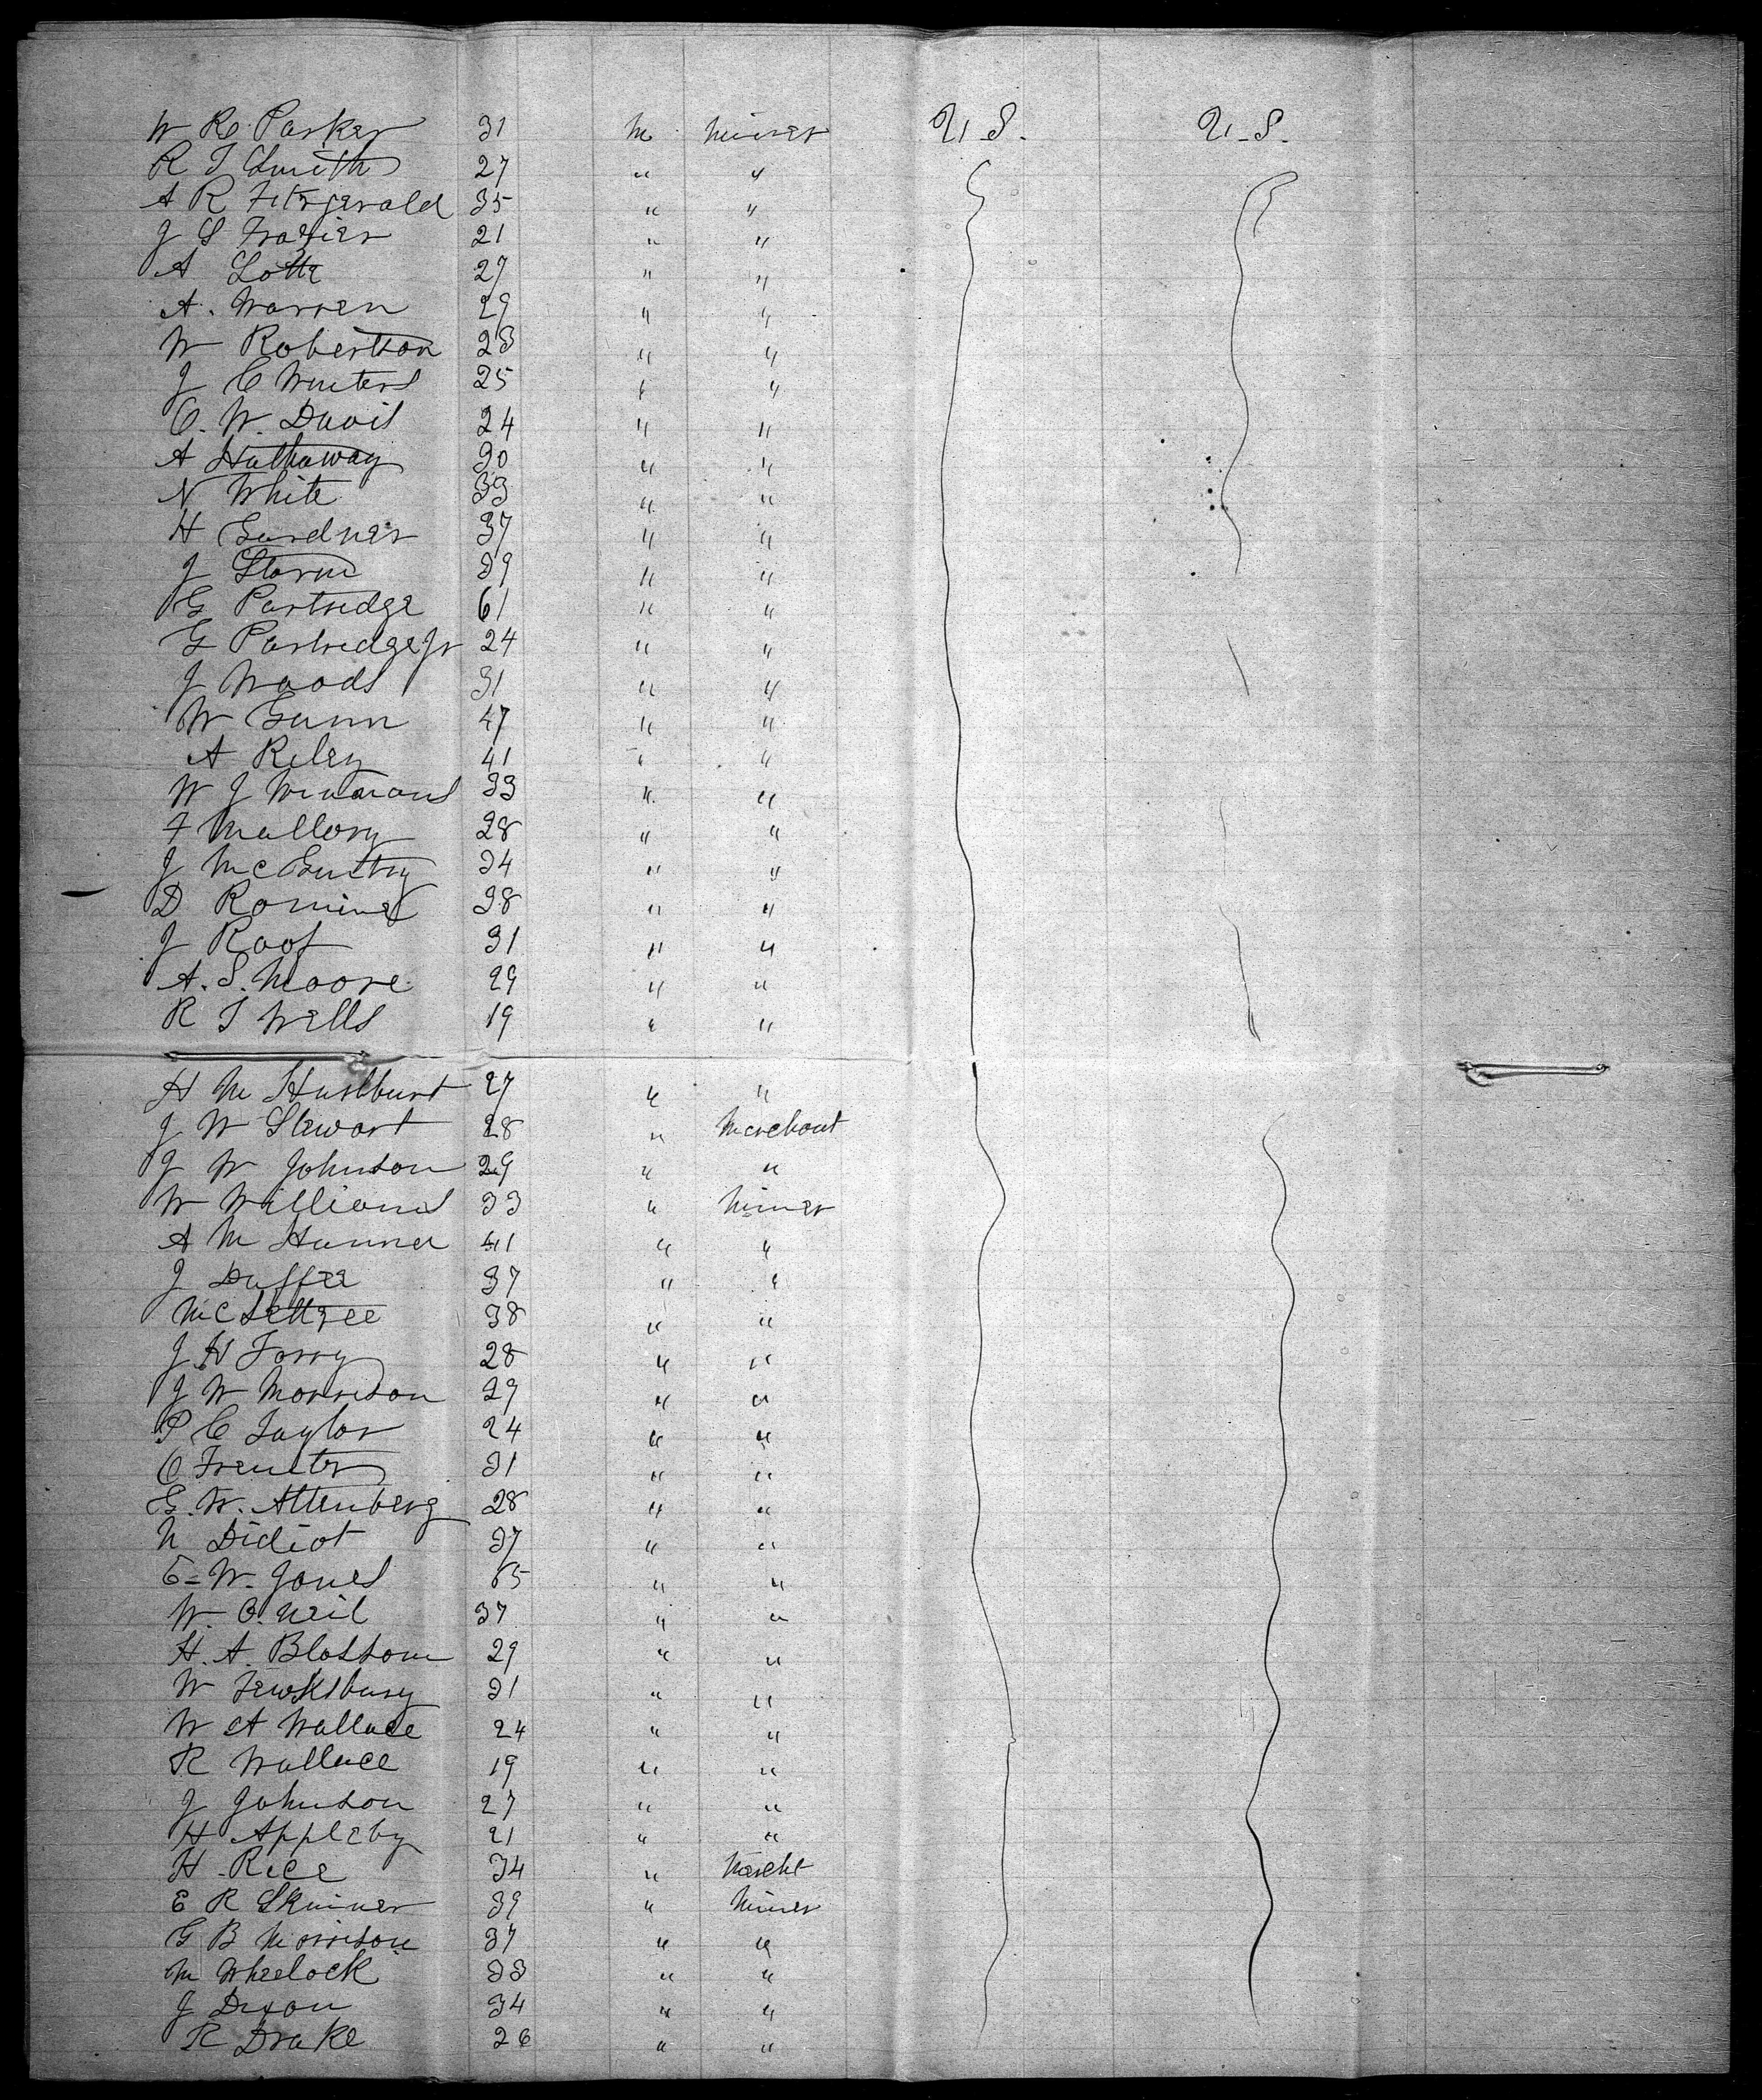 W R Parker 31 M Miner U.S. U.S.
R T Smith 27 " "
A R Fitzgerald 35 " "
J S Frazier 21 " "
A Lotta 27 " "
A. Warren 29 " "
W Robertson 28 " "
J C Winters 25 " "
C. W. Davis 24 " "
A Hathaway 30 " "
N White 33 " "
H Gardner 37 " "
J Storm 39 " "
G Partridge 61 " "
G Partridge Jr 24 " "
J Woods 31 " "
W Gunn 47 " "
A Riley 41 " "
W J 33 " "
F Mallory 28 " "
J 34 " "
D Romine 38 " "
J Root 31 " "
A. S. Moore 29 " "
R T Wells 19 " "
H M Hurlburt 27 " "
J W Stewart 28 " Merchant
J W Johnson 29 " "
W Williams 33 " Miner
A M Hanna 41 " "
J Duffee 37 " "
38 " "
J H Torry 28 " "
J W Morrison 29 " "
P C Taylor 24 " "
C 31 " "
G. W. Attenberg 28 " "
N Didiot 37 " "
E. W. Jones " "
W. O. Neil 37 " "
H. A. Blossom 29 " "
W Tewksbury 31 " "
W A Wallace 24 " "
R Wallace 19 " "
J Johnson 27 " "
H Appleby 21 " "
H Rice 34 " Mercht
E R Skinner 39 " Miner
G B Morrison 37 " "
M Wheelock 33 " "
J Dixon 34 " "
R Drake 26 " "